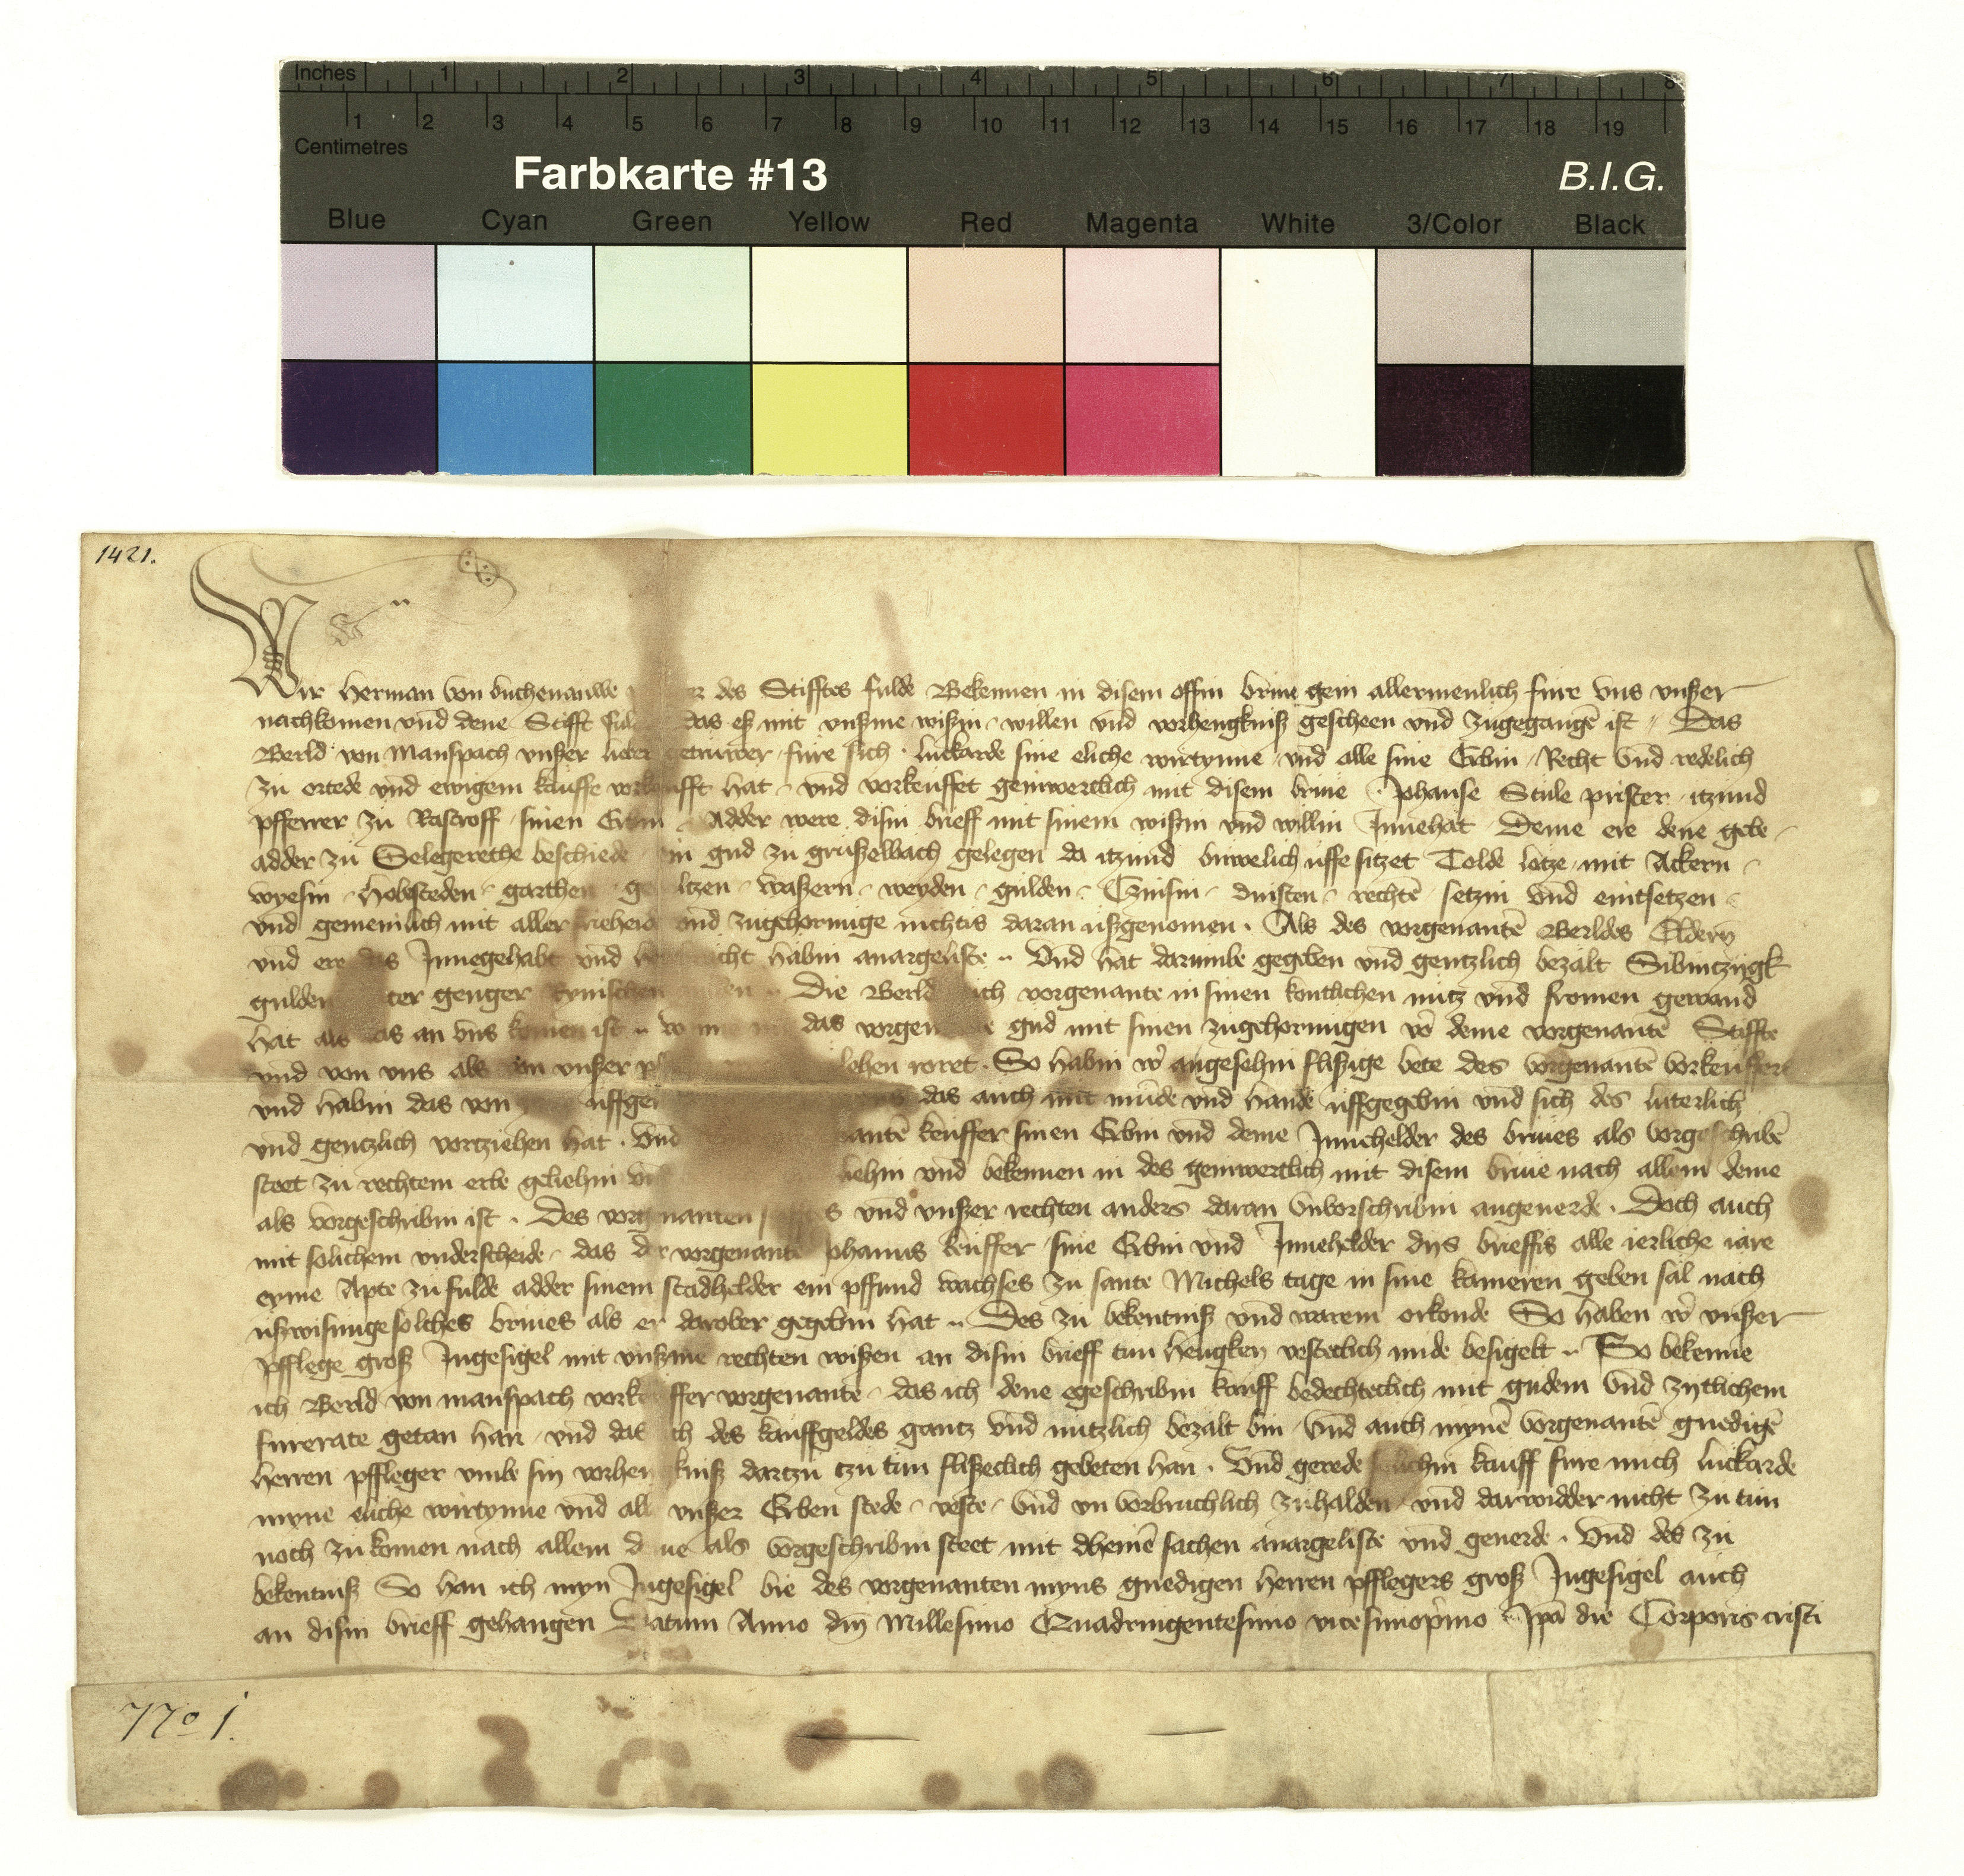 Inches 1 2 3 4 5 6 7 8
1 2 3 4 5 6 7 8 9 10 11 12 13 14 15 16 17 18 19
Centimetres
Farbkarte #13 B.I.G.
Blue Cyan Green Yellow Red Magenta White 3/Color Black
1421.
Wir Herman von buchenauwe des Stifftes fulde Bekennen in disem offin briue gein allermenlich fure vns vnßer
nachkomen vnd dene Stifft das eß mit vnßme wißin willen vnd vorhengkniß gescheen vnd zugegangē ist Das
Berld von Manspach vnßer lieber getruwer fure sich luckarde sine eliche wirtynne vnd alle sine Erbin Recht vnd redelich
zu ortede vnd ewigem kauffe vorkeufft hat vnd vorkeuffet geinwertlich mit disem briue Johanse Stule prister itzund
pfferrer zu Rastroff sinen Erbin Adder were disin brieff mit sinem wißin vnd willin Innehat Deme ere dene gebe
adder zu Selegerethe beschiede ein gud zu grußelbach gelegen da itzund buwelich uffe sitzet Tolde lotze mit Ackern
wyesin hobsteden garthen waßern weyden gulden Czinsin dinsten rechtē setzin vnd entsetzen
vnd gemeinlich mit aller frieheid vnd zugehorunge nichtis daran ußgenomen. Als des vorgenantē Berldes Eldern
vnd ere das Innegehabt vnd habin anargeliste Vnd hat darumbe gegeben vnd gentzlich bezalt Sibintzigk
gulden genger Rynischen Die Berld auch vorgenante in sinen kontlichen nutz vnd fromen gewand
hat als das an vns komen ist das vorgen gud mit sinen zugehorungen vō deme vorgenantē Stiffte
vnd von vns als von vnßer lehen roret. So habin wˀ angesehin flißige bete des vorgenantē vorkeuffers
vnd habin das von das auch mit munde vnd hande uffgegebin vnd sich des luterlich
vnd gentzlich vortziehen hat. Vnd keuffer sinen Erbin vnd deme Innehelder des briues als vorgeschribē
steet zu rechtem erbe geliehin vnd liehin vnd bekennen in des geinwertlich mit disem briue nach allem deme
als vorgeschribin ist. Des vorgenanten stifftes vnd vnßer rechten anders daran vnvorschribin angeuerde. Doch auch
mit solichem vnderscheide das der vorgenante Johanns keuffer sine Erbin vnd Innehelder dys brieffis alle ierliche iare
eyme Apte zu fulde adder sinem stadhelder ein pffund wachses zu sante Michels tage in sine kameren geben sal nach
ußwisunge solches briues als er darober gegebin hat Des zu bekentniß vnd warem orkonde So haben wˀ vnßer
pfflege groß Ingesigel mit vnßme rechten wißen an disin brieff tun hengken vestlich nide besigelt So bekenne
ich Berld von manspach vorkeuffer vorgenante das ich dene egeschribin kauff bedechteclich mit gudem vnd zytlichem
furerate getan han vnd das ich des kauffgeldes gantz vnd nutzlich bezalt bin Vnd auch mynē vorgenantē gnedigē
herren pffleger vmb sin vorhengkniß dartzu tzu tun flißeclich gebeten han. Vnd gerede solichin kauff fure mich luckarde
myne eliche wirtynne vnd alle vnßer Erben stede veste vnd vn vorbruchlich zuhalden vnd darwidder nicht zu tun
noch zu komen nach allem deme als vorgeschribin steet mit dheinē sachen anargeliste vnd geuerde. Vnd des zu
bekentniß So han ich myn Ingesigel bie des vorgenanten myns gnedigen herren pfflegers groß Ingesigel auch
an disin brieff gehangen Datum Anno dm̄ Millesimo Quadringentesimo vicesimop̄mo Ip̄a die Corporis cristi
No 1.